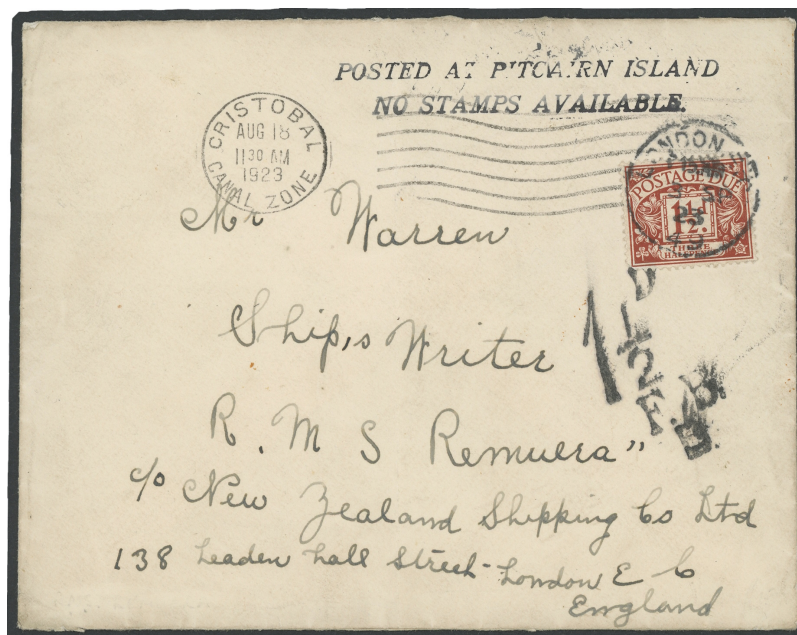 POSTED AT PITCAIRN ISLAND
NO STAMPS AVAILABLE.
CRISTOBAL
AUG 18
11 30 AM
1923
CANAL ZONE
LONDON
POSTAGE DUE
1½D.
THREE HALFPENCE
Mr Warren
Ship,s Writer
R. M S Remuera"
c/o New Zealand Shipping Co Ltd
138 Leaden hall Street - London E C
England
1½D